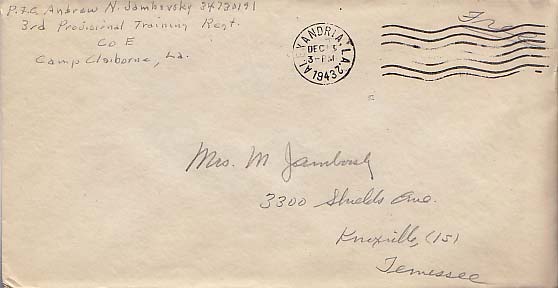 P.F.C. Andrew N. Jambovsky 34730191
3rd Provisional Training Regt.
Co E
Camp Claiborne, La.
Free
ALEXANDRIA, LA.
DEC
3-PM
1943
Mrs. M Jambosky
3300 Shields Ave.
Knoxville, (15)
Tennessee